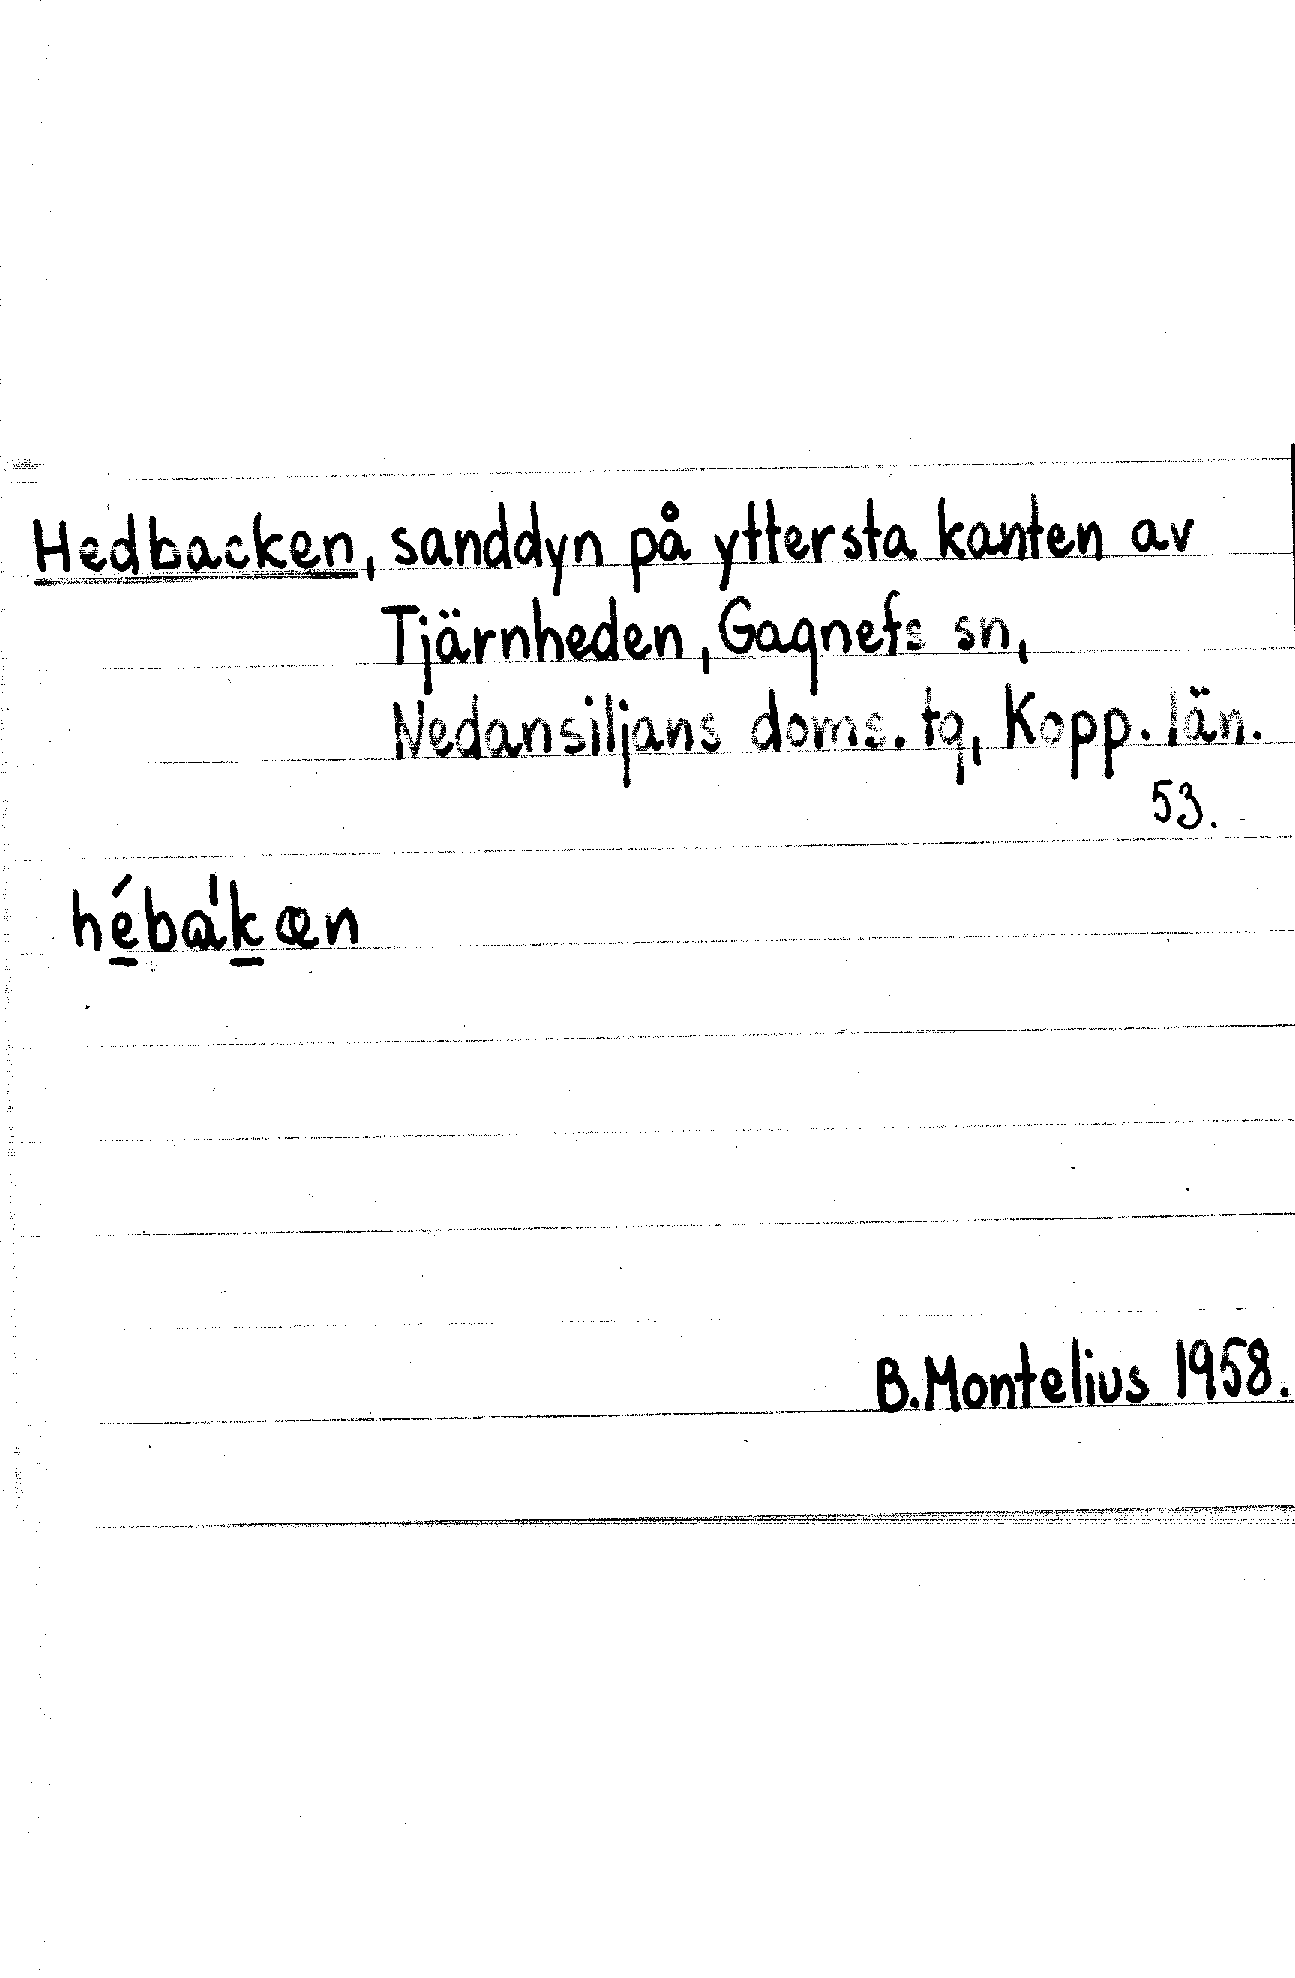 Hedbacken, sanddyn på yttersta kanten av
Tjärnheden, Gagnefs sn,
Nedansiljans doms. tg, Kopp. län.
53.
hébàkæn
B. Montelius 1958.